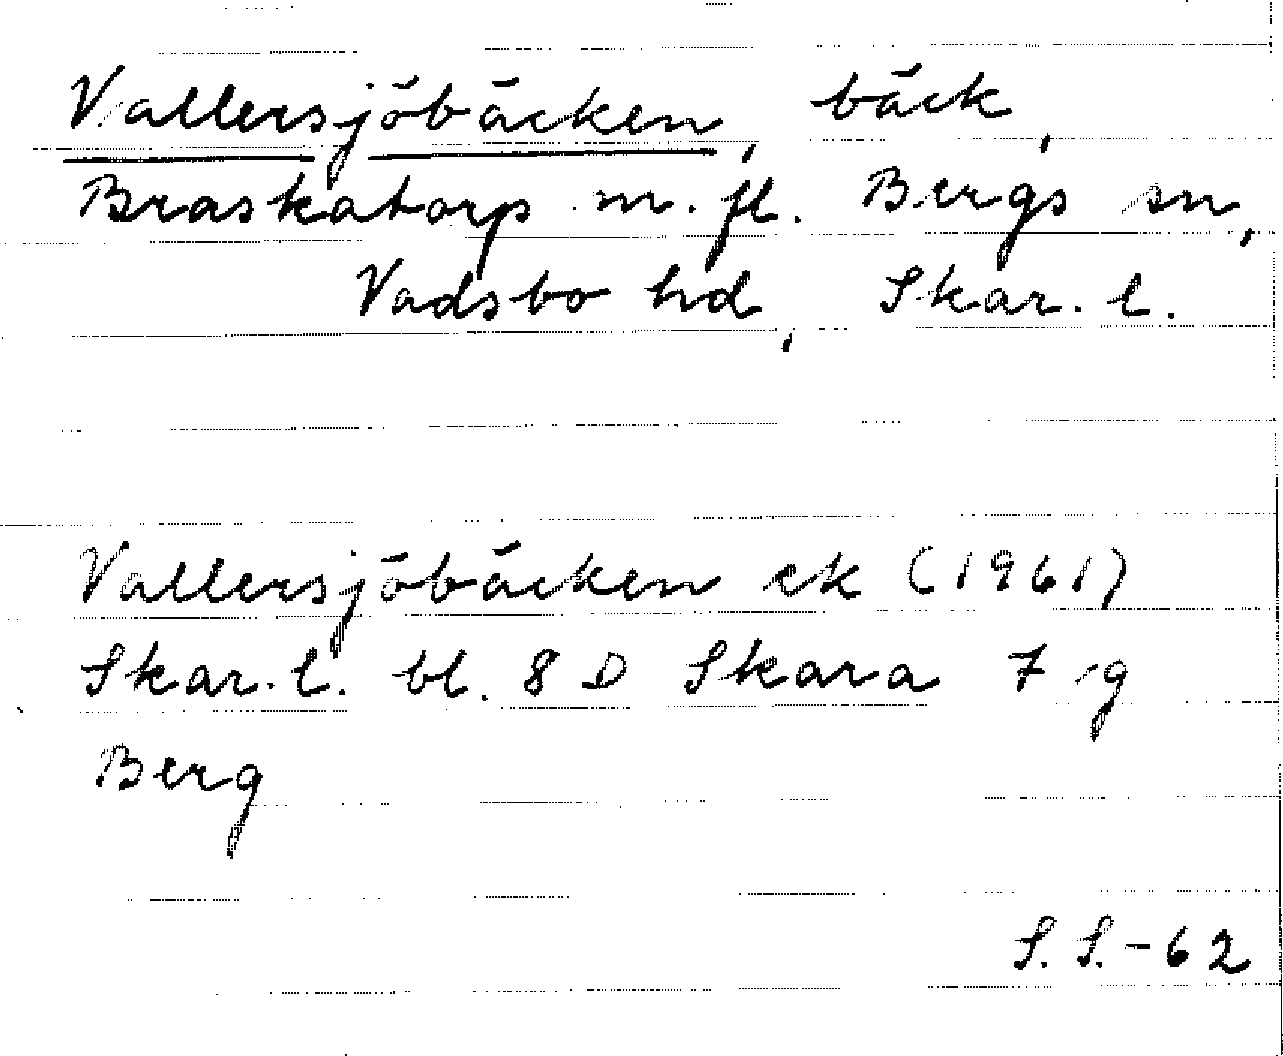 Vallersjöbäcken, bäck,
Braskatorp m. fl. Bergs sn,
Vadsbo hd, Skar. l.
Vallersjöbäcken ek (1961)
Skar. l. bl. 8 D Skara 7 g
Berg
S. S. - 62